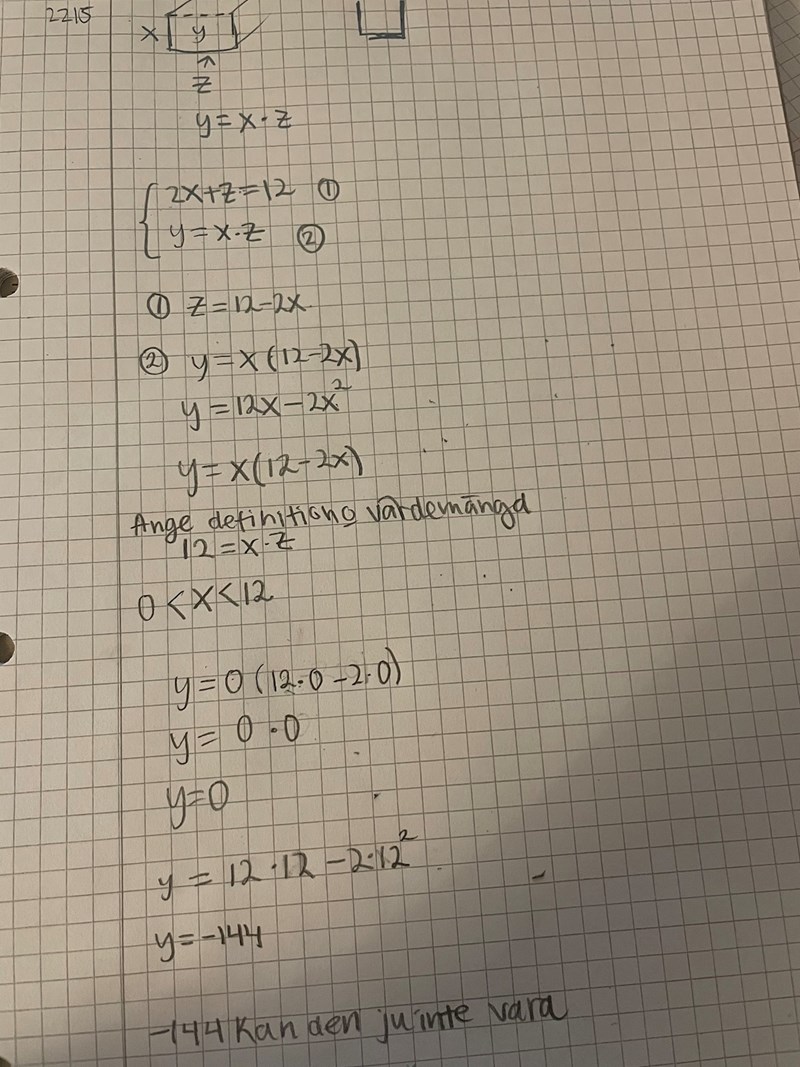 2215
x y
z
y = x · z
2x+z=12 ①
y = x·z ②
① z = 12-2x
② y = x (12-2x)
y = 12x - 2x²
y = x(12-2x)
Ange definitions värdemängd
12 = x·z
0 < x < 12
y = 0 (12·0 - 2·0)
y = 0 · 0
y=0
y = 12·12 - 2·12²
y = -144
-144 kan den ju inte vara